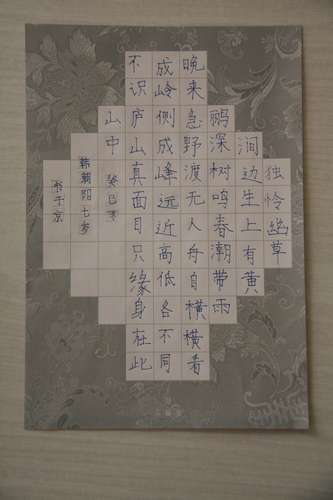 独怜幽草
涧边生上有黄
鹂深树鸣春潮带雨
晚来急野渡无人舟自横横看
成岭侧成峰远近高低各不同
不识庐山真面目只缘身在此
山中 癸巳
阳七岁
书于京